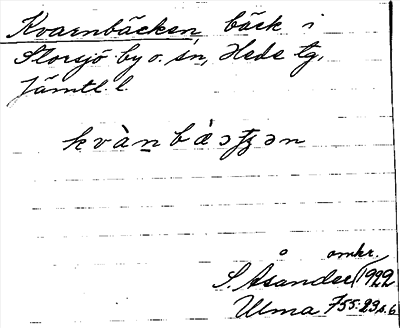 Kvarnbäcken, bäck i
Storsjö by o. sn, Hede tg,
Jämtl. l.
kvànbàətʒən
omkr.
S. Åsander 1922
Ulma 755:23 s. 6